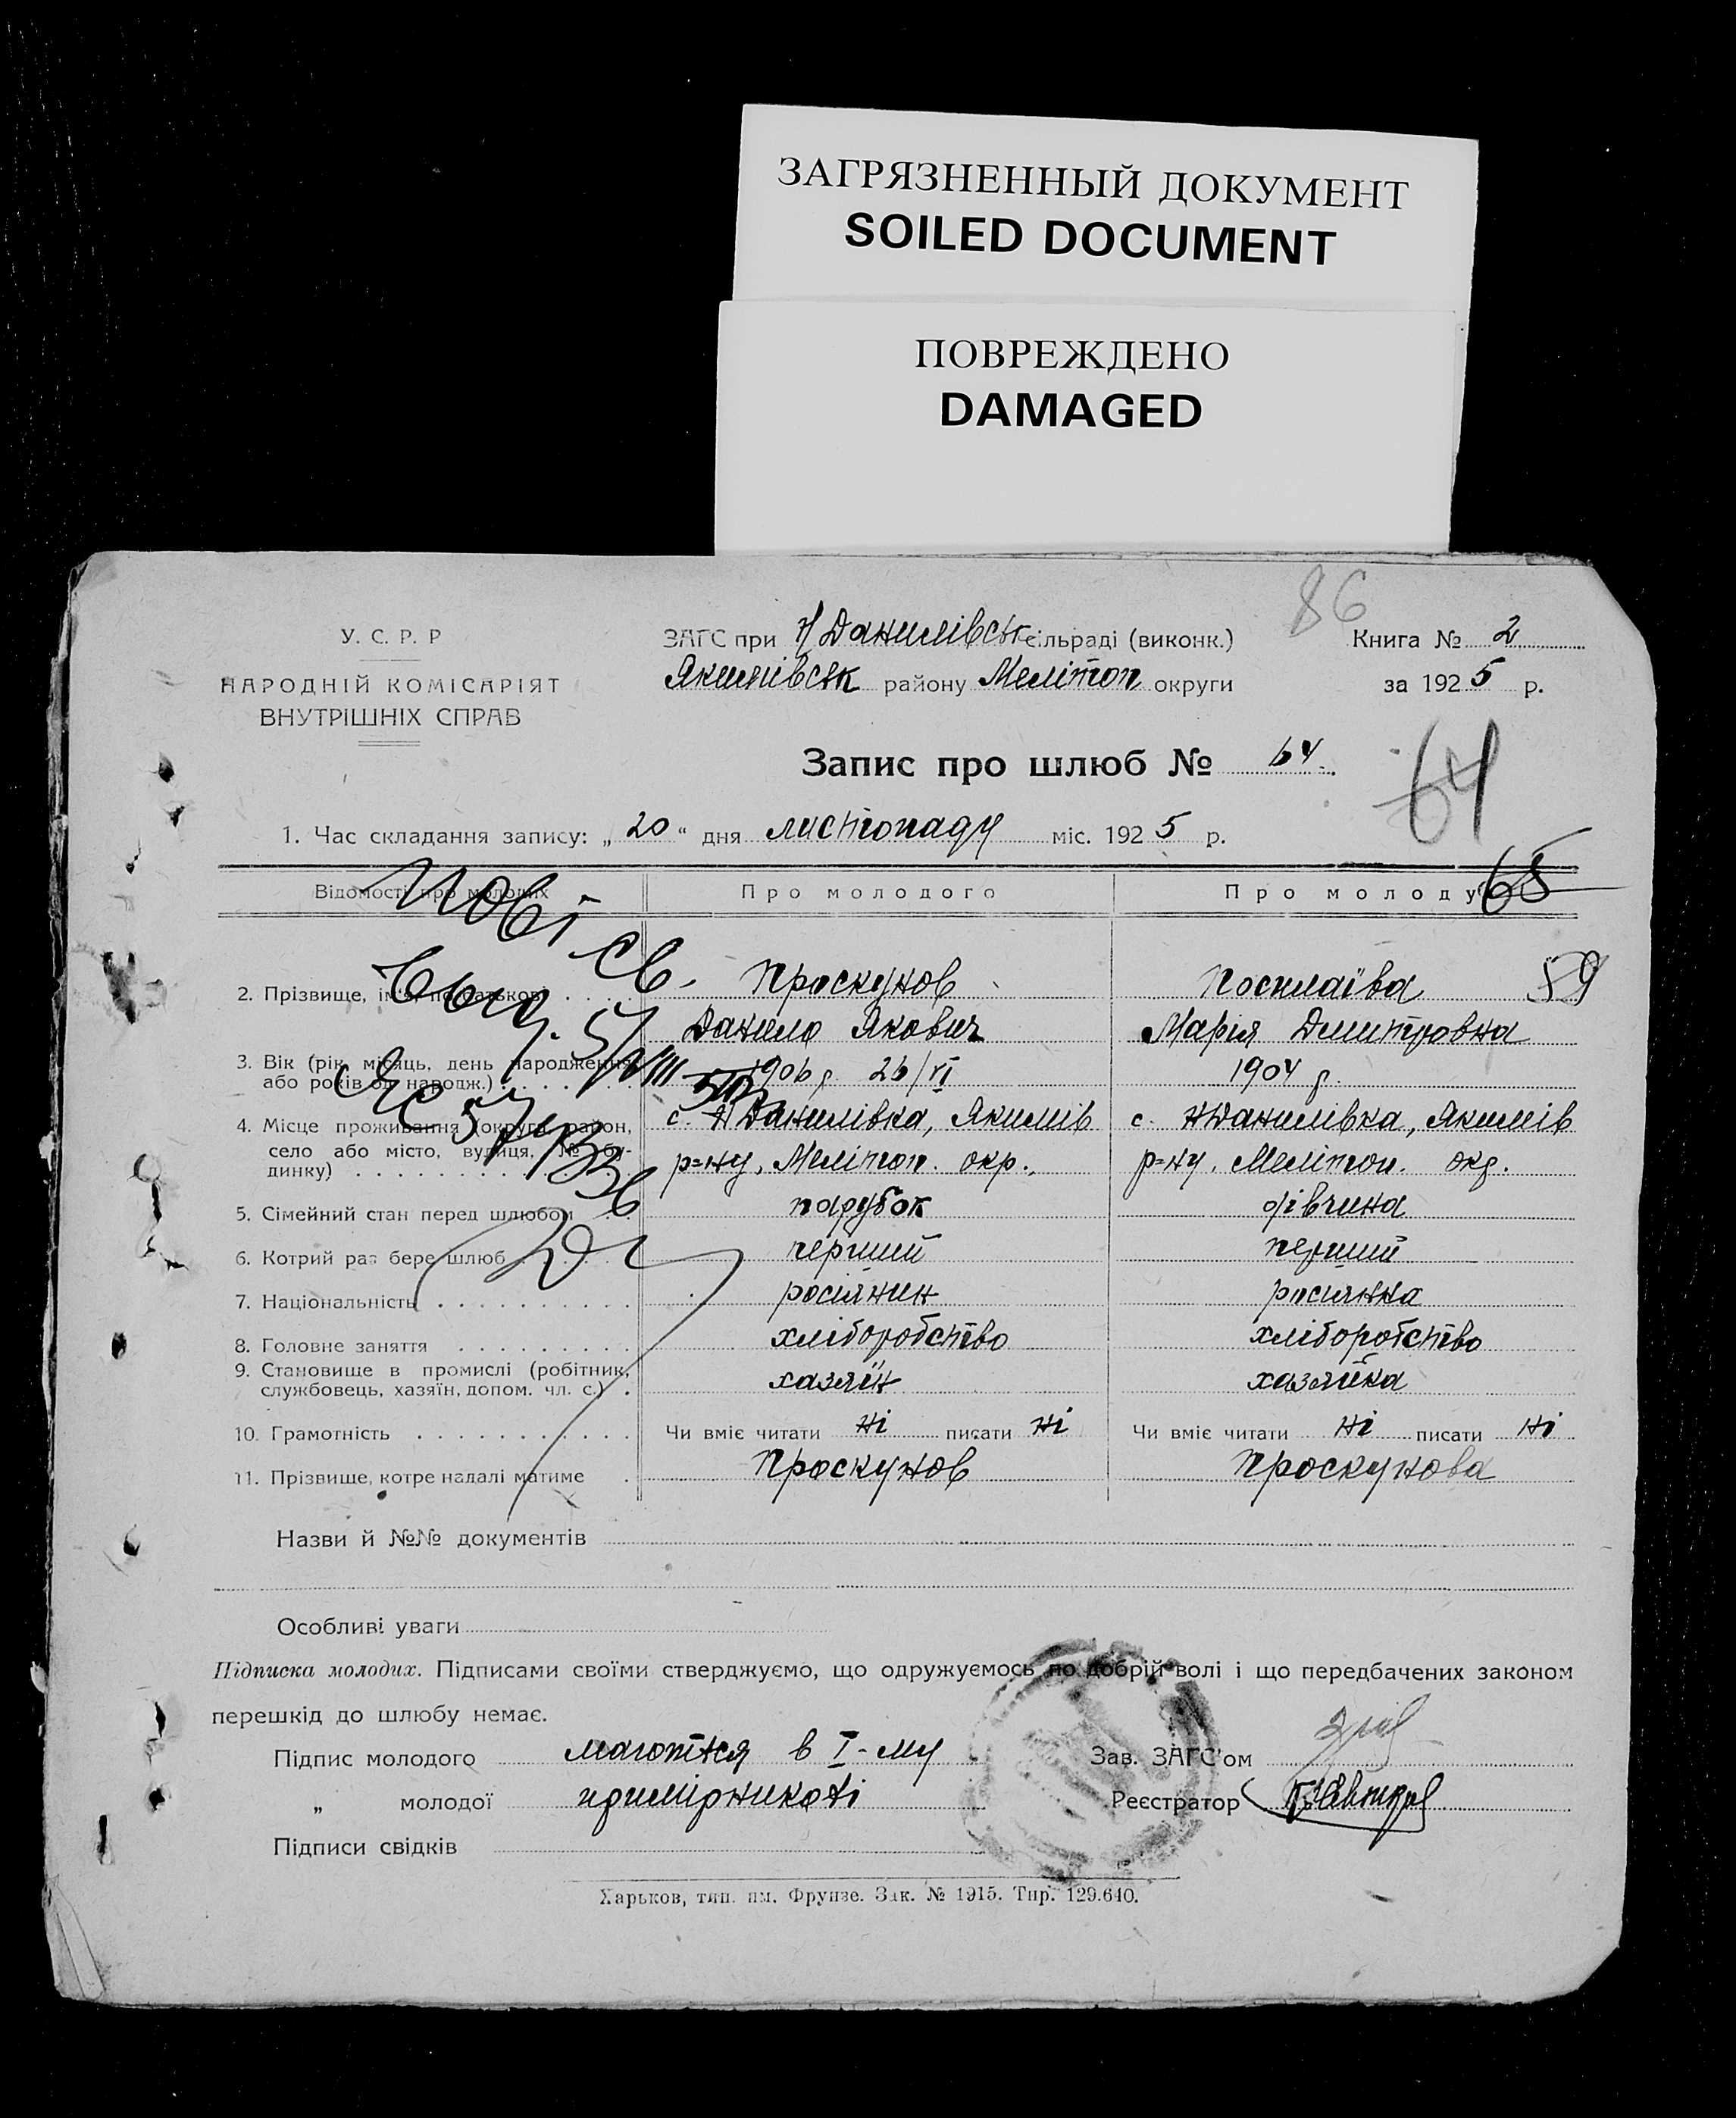 ЗАГРЯЗНЕННЫЙ ДОКУМЕНТ
SOILED DOCUMENT
ПОВРЕЖДЕНО
DAMAGED
86
У. С. Р. Р
НАРОДНІЙ КОМІСАРІЯТ
ВНУТРІШНІХ СПРАВ
ЗАГС при Н Данилівськ сільраді (виконк.)
Якимівськ району Мелітоп округи
Книга № 2
за 1925 р.
Запис про шлюб № 64.
64
1. Час складання запису: „20“ дня листопаду міс. 1925 р.
65
Відомості про молодих Про молодого Про молоду
59
2. Прізвище, ім'я, по батькові Проскунов
Данило Якович Марія Дмитровна
3. Вік (рік, місяць, день народження або років од народж.) 1906 р. 26/VI 1904 р.
4. Місце проживання (округа, район, село або місто, вулиця, № будинку) с. Н Данилівка, Якимів с. Н Данилівка, Якимів
р=ну, Мелітоп. окр., р=ну, Мелітоп. окр.
5. Сімейний стан перед шлюбом парубок дівчина
6. Котрий раз бере шлюб перший перший
7. Національність росіянин росіянка
8. Головне заняття хліборобство хліборобство
9. Становище в промислі (робітник, службовець, хазяїн, допом. чл. с.) хазяїн хазяйка
10. Грамотність Чи вміє читати ні писати ні Чи вміє читати ні писати ні
11. Прізвище, котре надалі матиме Проскунов Проскунова
Назви й №№ документів
Особливі уваги
Підписка молодих. Підписами своїми стверджуємо, що одружуємось по добрій волі і що передбачених законом
перешкід до шлюбу немає.
Підпис молодого маються в І-му Зав. ЗАГС'ом
„ молодої примірникові Реєстратор
Підписи свідків
Харьков, тип. им. Фрунзе. Зак. № 1915. Тир. 129.640.